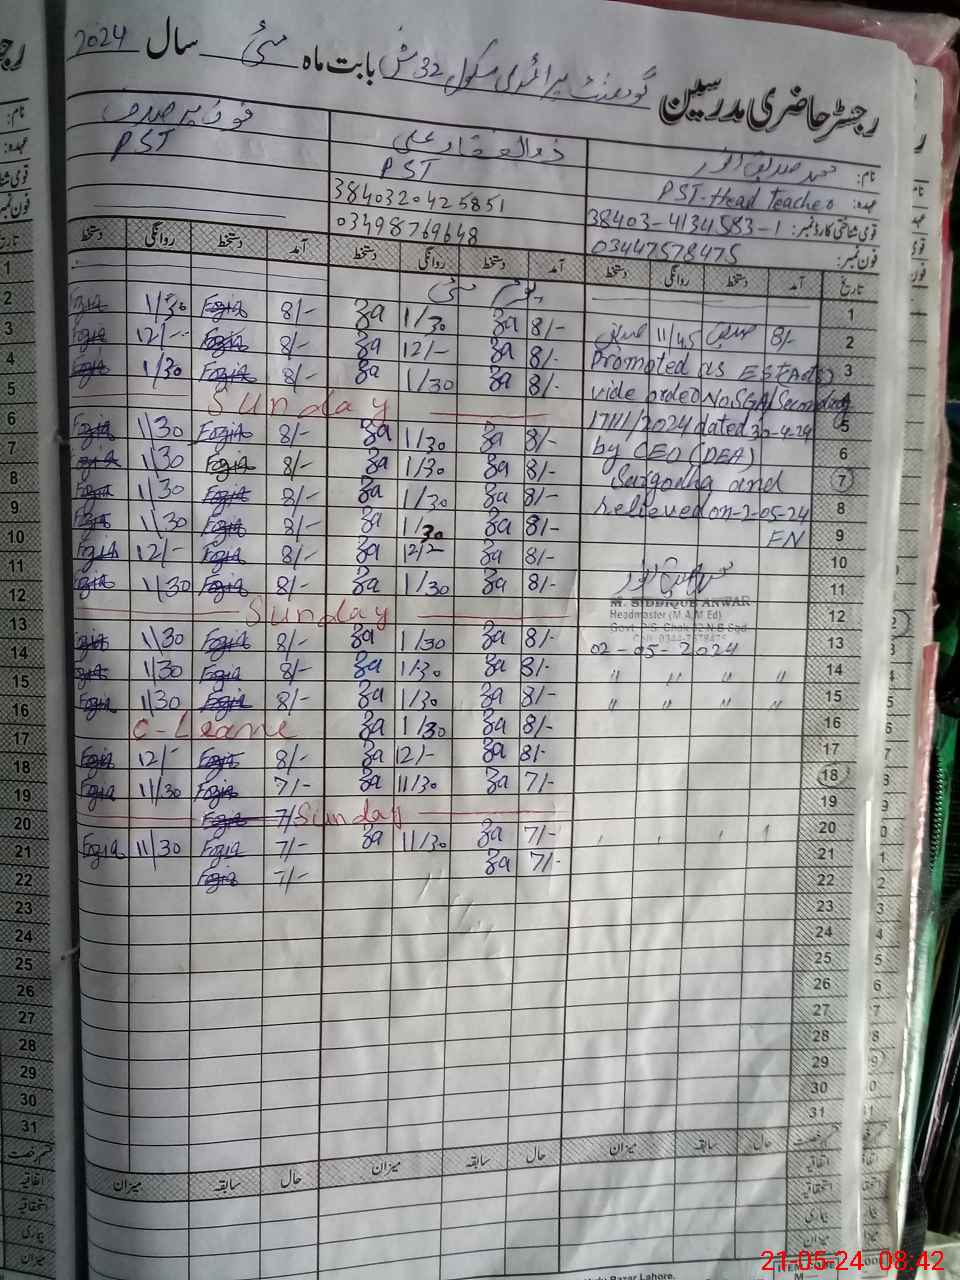 رجسٹر حاضری مدرسین گورنمنٹ پرائمری سکول 32 بابت ماہ مئی سال 2024
نام: محمد صدیق انور ذوالفقار علی فوزیہ صدف
عہدہ: PST-Head Teacher PST PST
قومی شناختی کارڈ نمبر: 38403-4134583-1 3840320425851
فون نمبر: 03447578475 03498769648
تاریخ آمد دستخط روانگی دستخط آمد دستخط روانگی دستخط آمد دستخط روانگی دستخط
1 یوم مئی
2 8/- 11/45 8/- 1/30 8/- Fozia 1/30 Fozia
3 Promoted as EST(Arts) 8/- 12/- 8/- Fozia 12/-- Fozia
4 vide order No SGA/Secondary 8/- 1/30 8/- Fozia 1/30 Fozia
5 17111/2024 dated 30-4-24 Sunday
6 by CEO (DEA) 8/- 1/30 8/- Fozia 1/30 Fozia
7 Sargodha and 8/- 1/30 8/- Fozia 1/30 Fozia
8 relieved on 2-05-24 8/- 1/30 8/- Fozia 1/30 Fozia
9 FN 8/- 1/30 8/- Fozia 1/30 Fozia
10 8/- 8/- Fozia 12/- Fozia
11 8/- 1/30 8/- Fozia 1/30 Fozia
M. SIDDIQUE ANWAR
Headmaster (M.A,M.Ed)
12 Sunday
13 02-05-2024 8/- 1/30 8/- Fozia 1/30 Fozia
14 " " " " 8/- 1/30 8/- Fozia 1/30 Fozia
15 " " " " 8/- 1/30 8/- Fozia 1/30 Fozia
16 8/- 1/30 C-Leave
17 8/- 12/- 8/- Fozia 12/- Fozia
18 7/- 11/30 7/- Fozia 11/30 Fozia
19 Sunday 7/- Fozia
20 7/- 11/30 7/- Fozia 11/30 Fozia
21 7/- 7/- Fozia
22
23
24
25
26
27
28
29
30
31
حال سابقہ میزان حال سابقہ میزان حال سابقہ میزان
اتفاقیہ
استحقاقیہ
بیماری
میزان
Bazar Lahore.
21-05-24 08:42